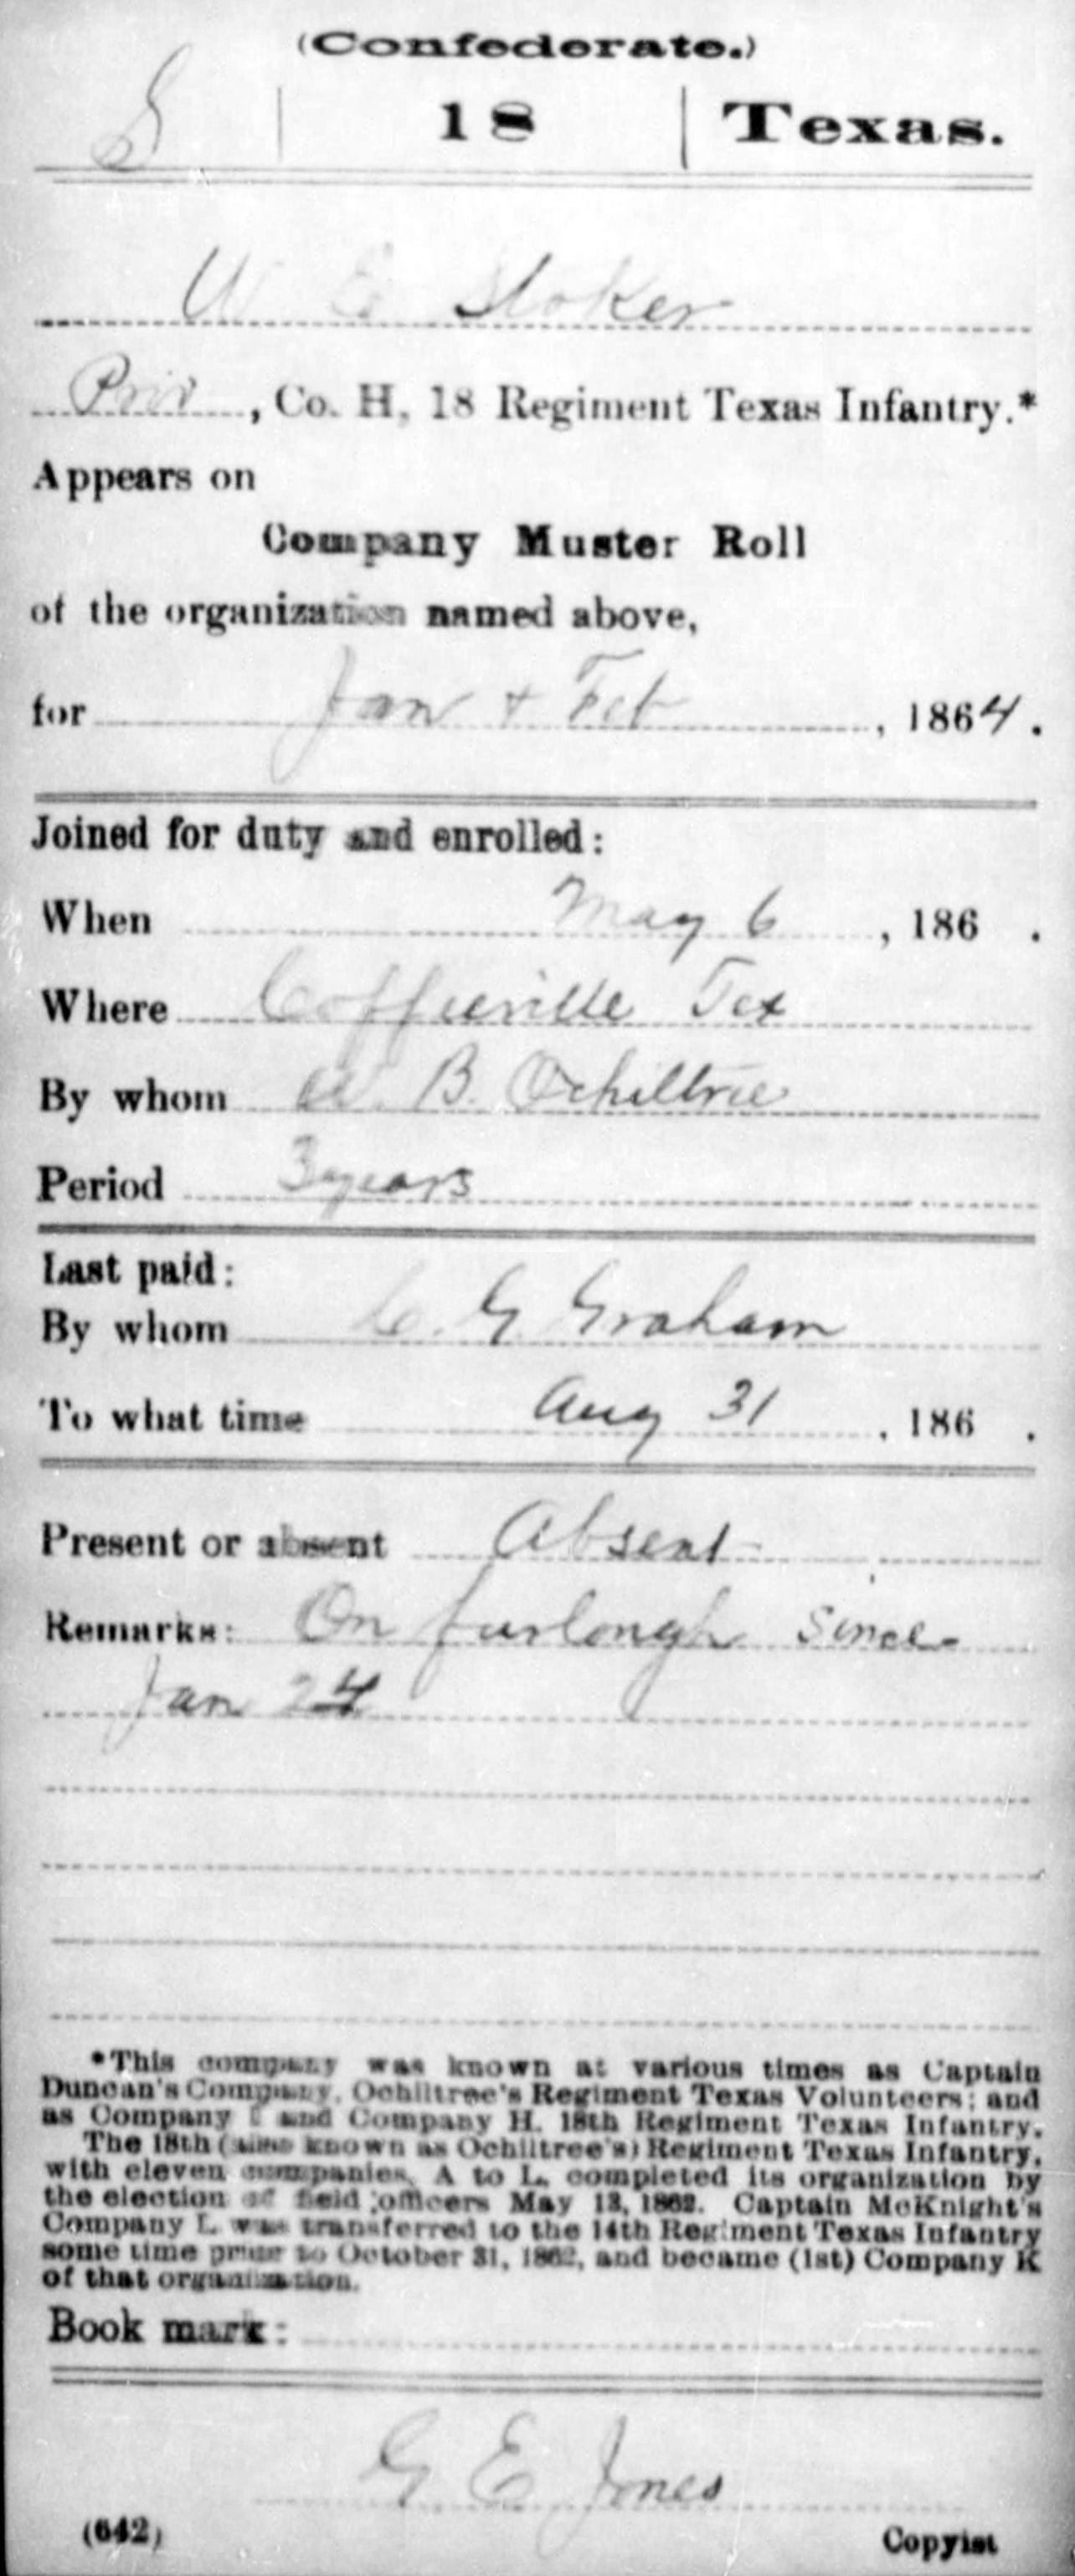 (Confederate.)
S | 18 | Texas.
W E Stoker
Priv, Co. H, 18 Regiment Texas Infantry.*
Appears on
Company Muster Roll
of the organization named above,
for Jan + Feb, 1864.
Joined for duty and enrolled:
When May 6, 186 .
Where Coffeeville Tex
By whom W. B. Ochiltree
Period 3 years
Last paid:
By whom C. G Graham
To what time Aug 31, 186 .
Present or absent Absent
Remarks: On furlough since
Jan 24
*This company was known at various times as Captain
Duncan's Company, Ochiltree's Regiment Texas Volunteers; and
as Company I and Company H, 18th Regiment Texas Infantry.
The 18th (also known as Ochiltree's) Regiment Texas Infantry,
with eleven companies, A to L, completed its organization by
the election of field officers May 13, 1862. Captain McKnight's
Company L was transferred to the 14th Regiment Texas Infantry
some time prior to October 31, 1862, and became (1st) Company K
of that organization.
Book mark:
G E Jones
(642) Copyist